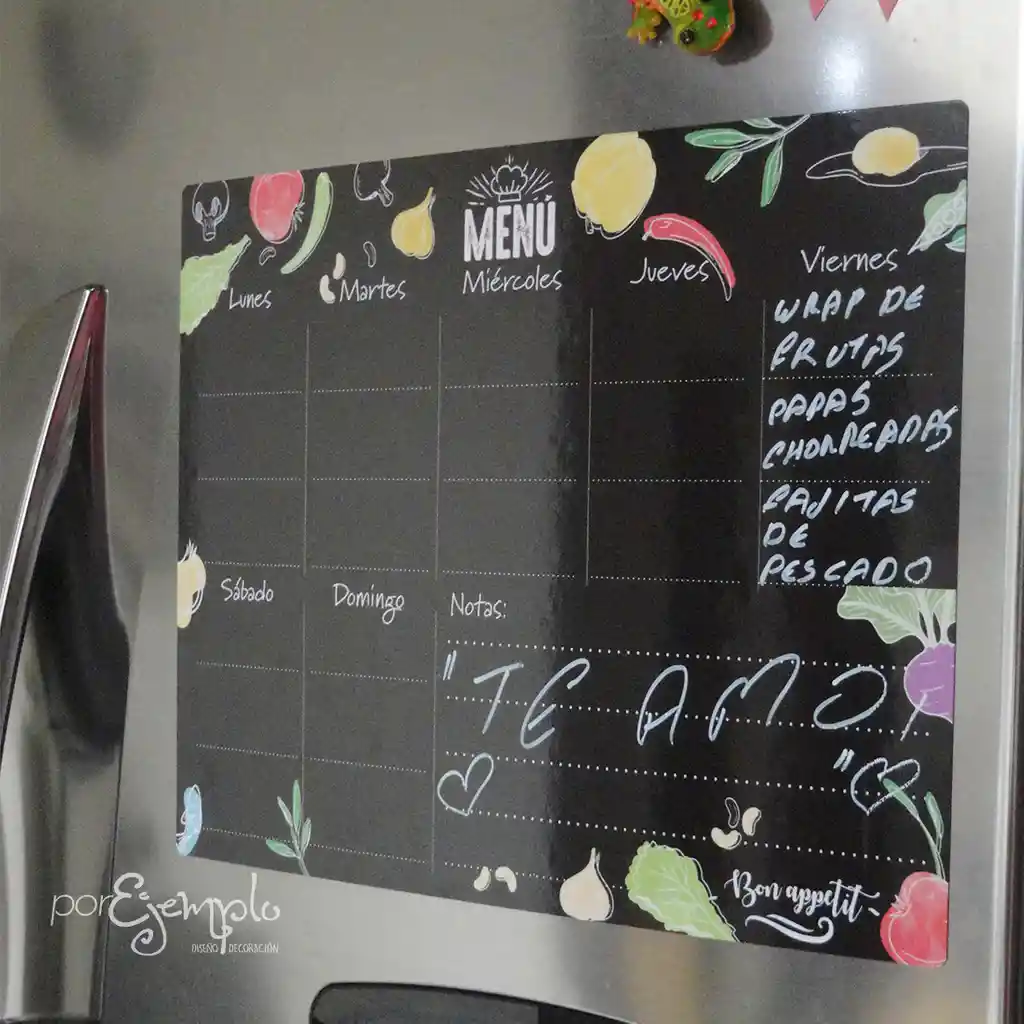 MENÚ
Lunes
Martes
Miércoles
Jueves
Viernes
WRAP DE
FRUTAS
PAPAS
CHORREADAS
FAJITAS
DE
PESCADO
Sábado
Domingo
Notas:
"TE AMO
"
Bon appetit
porEjemplo
DISEÑO DECORACIÓN